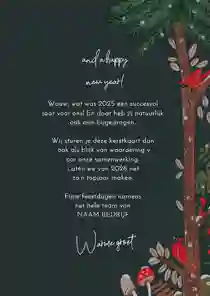 and a happy
new year!
Wauw, wat was 2025 een succesvol
jaar voor ons! En daar heb jij natuurlijk
ook aan bijgedragen.
Wij sturen je deze kerstkaart dan
ook als blijk van waardering v
oor onze samenwerking.
Laten we van 2026 net
zo'n topjaar maken.
Fijne feestdagen namens
het hele team van
NAAM BEDRIJF
Warme groet